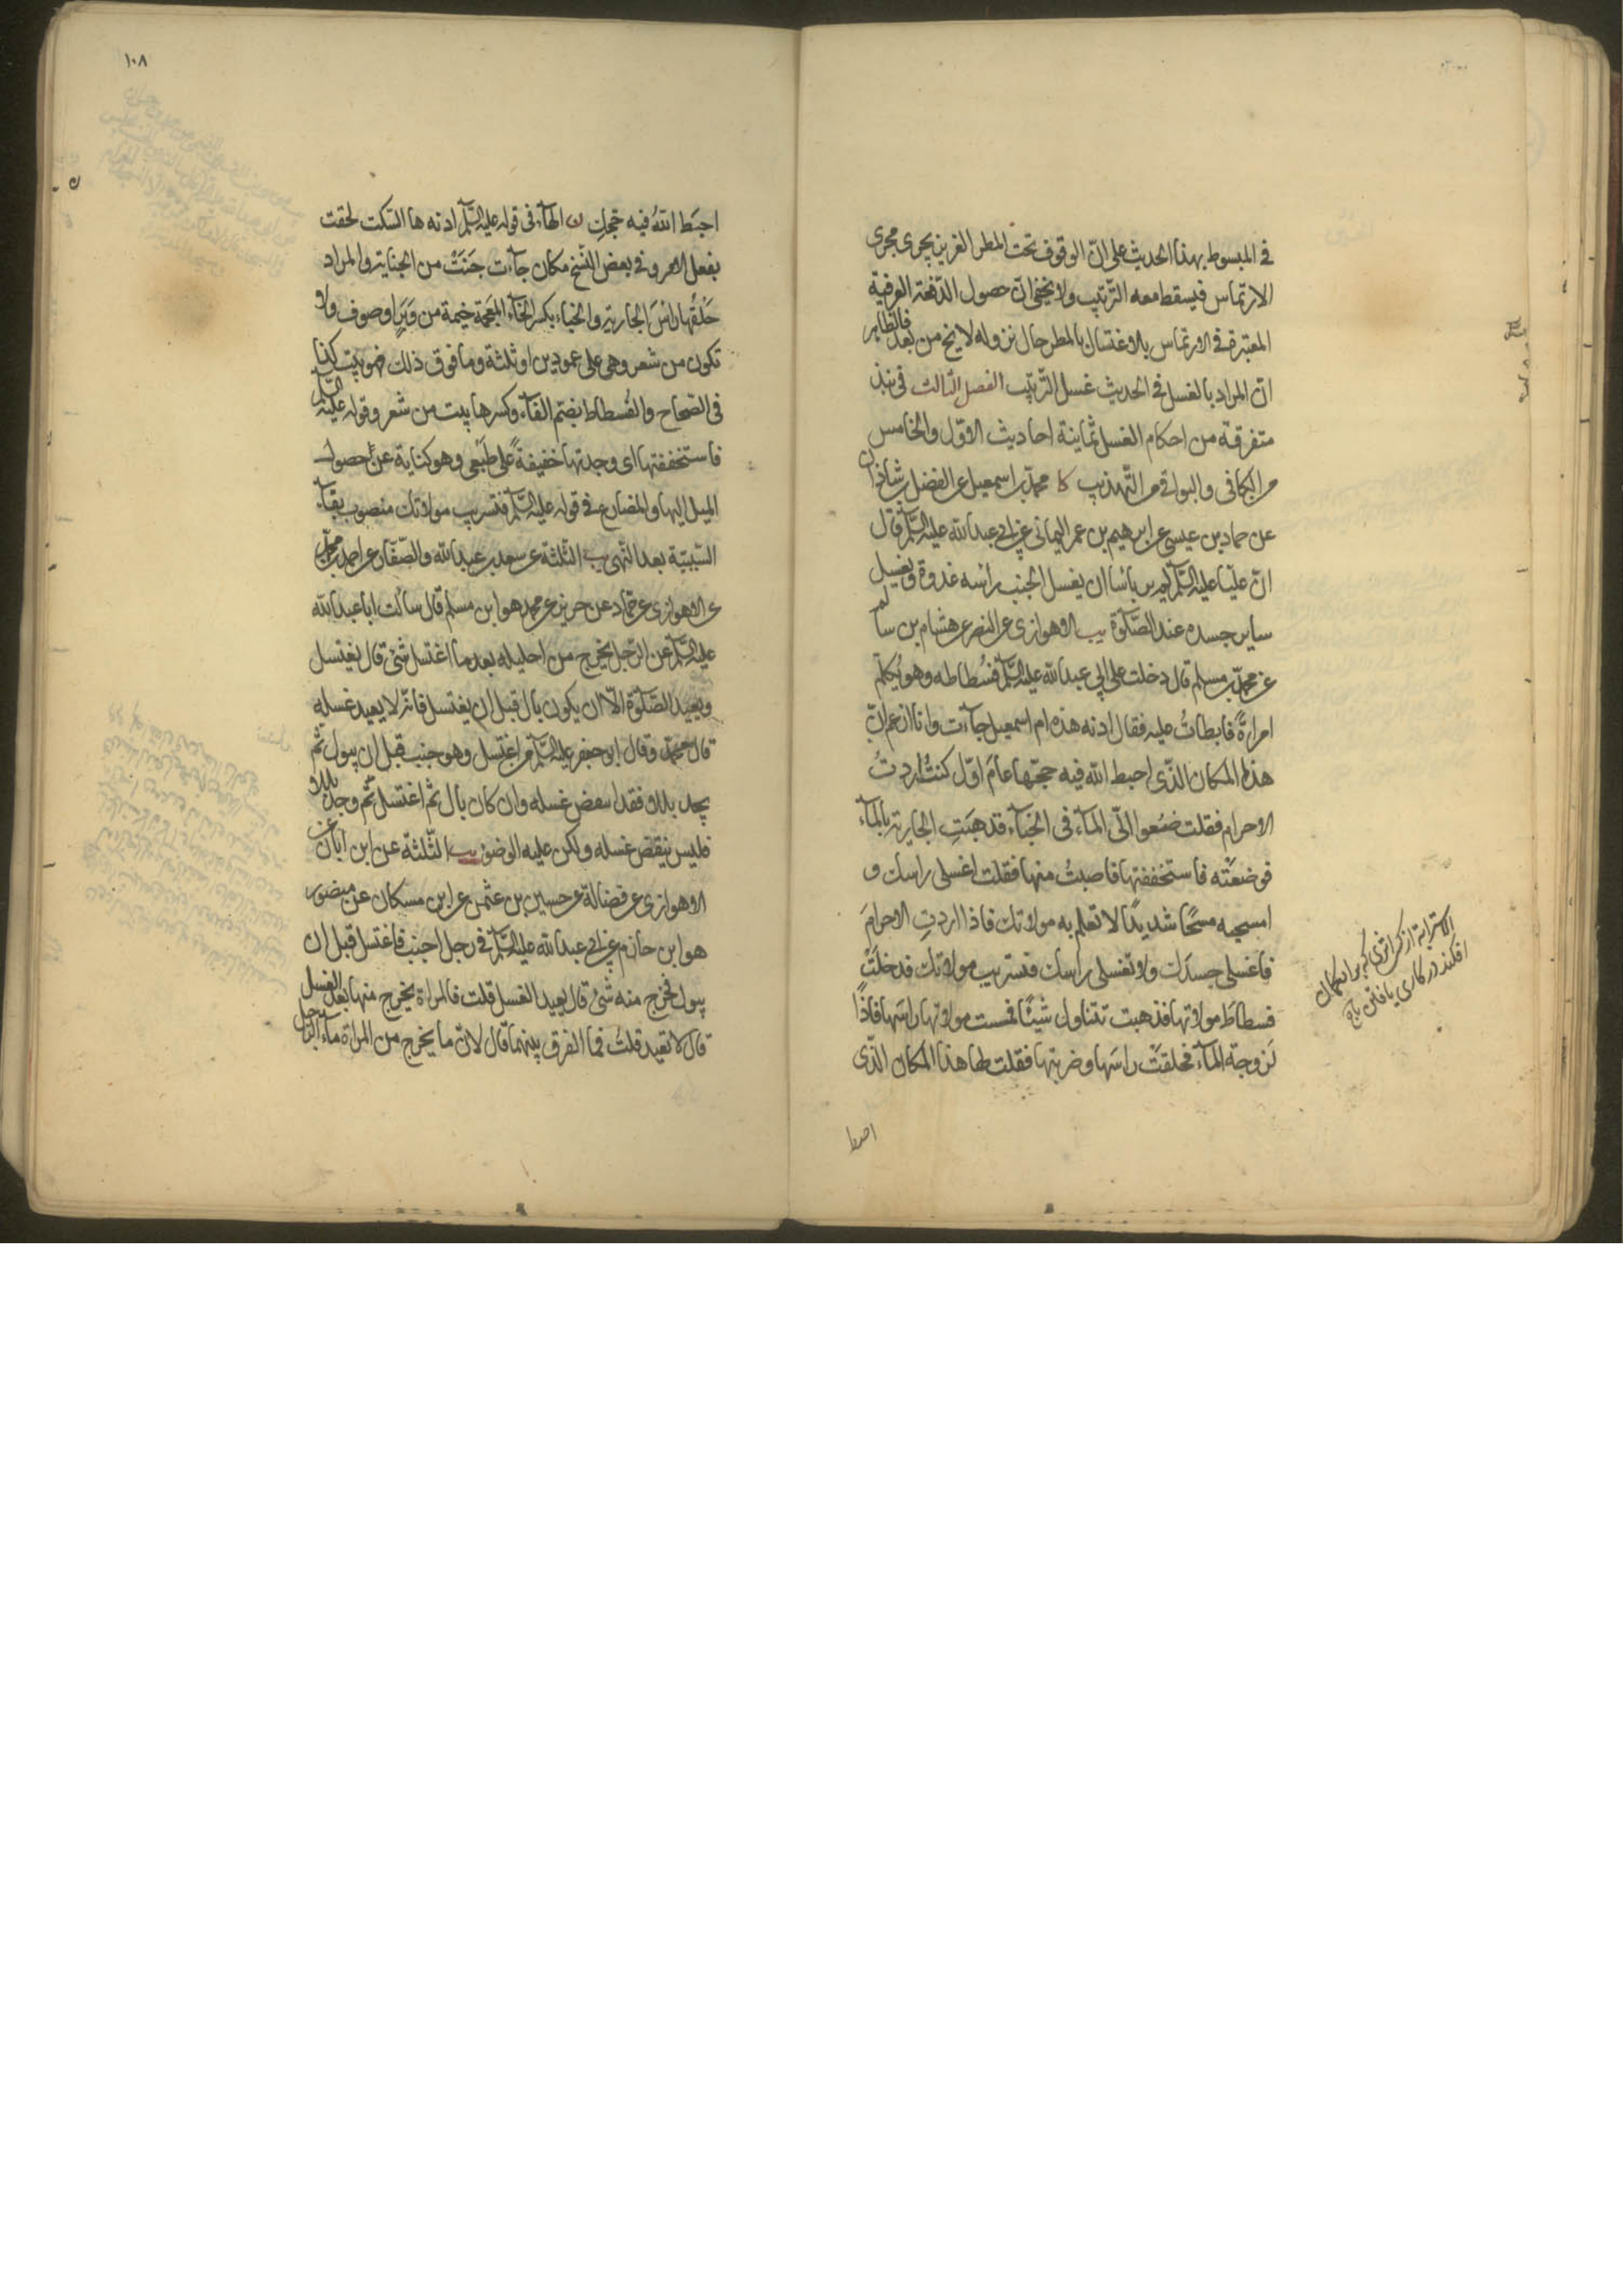 في المبسوط بهذا الحديث على انّ الوقوف تحت المطر الغزير يجرى مجرى
الارتماس فيسقط معه الترتيب ولا يخفى انّ حصول الدّفعة العرفية
المعتبرة في الارتماس بالاغتسال بالمطر حال نزوله لا يخ من بعد فالظاهر
انّ المراد بالغسل في الحديث غسل الترتيب الفصل الثالث في نبذ
متفرقة من احكام الغسل ثمانية احاديث الاوّل والخامس
من الكافى والبواقى من التهذيب كا محمد بن اسمعيل عن الفضل بن شاذان
عن حماد بن عيسى عن ابرهيم بن عمر اليمانى عن ابي عبد الله عليه السّلم قال
انّ عليّا عليه السّلم لم ير باسا ان يغسل الجنب راسه غدوة ويغسل
ساير جسده عند الصّلوة يب الاهوازى عن النضر عن هشام بن سالم
عن محمّد بن مسلم قال دخلت على ابي عبد الله عليه السّلم فسُطاطه وهو يُكلّم
امراةً فابطاتُ عليه فقال ادنه هذه ام اسمعيل جاءت وانا ازعم انّ
هذا المكان الذّى احبط الله فيه حجّها عامَ اوّل كنتُ اردتُ
الاحرام فقلت ضعوا الىّ الماء فى الخباء فذهبَتِ الجارية بالماء
فوضعتْه فاستخففتها فاصبتُ منها فقلت اغسلى راسك و
امسحيه مسحًا شديدًا لا تعلم به مولاتك فاذا اردتِ الاحرامَ
فاغسلى جسدَك ولا تغسلى راسك فتستريب مولاتك فدخلَتْ
فسطاطَ مولاتها فذهبت تتناول شيئًا فمست مولاتها راسَها فاذًا
لزوجة الماء فحلقتْ راسَها وضربتها فقلت لها هذا المكان الذّى
احبط
الاسترابة از كسى
افكند در كارى يا فتن تاج
١٠٨
احبَط اللهُ فيه حجّكِ ن الهاء فى قوله عليه السّلم ادنه ها السّكت لحقت
بفعل الامر وفي بعض النّسخ مكان جاءت جَنَتْ من الجناية والمراد
حَلقُها راسَ الجارية والخباء بكسر الخاء المعجمة خيمة من وَبَرٍ او صوف ولا
تكون من شعر وهى على عمودين او ثلثة وما فوق ذلك فهو بيت كذا
فى الصّحاح والفُسطاط بضم الفاء وكسرها بيت من شعر وقوله عليه السّلم
فاستخففتها اى وجدتها خفيفةً على طَبْعى وهو كناية عن حصول
الميل اليها والمضارع في قوله عليه السّلم فتستريب مولاتك منصوب بفاء
السّببيّة بعد النّهى يب الثّلثة عن سعد بن عبد الله والصّفار عن احمد بن محمّد
عن الاهوازى عن حمّاد عن حريز عن محمد هو ابن مسلم قال سالت ابا عبد الله
عليه السّلم عن الرّجل يخرج من احليله بعد ما اغتسل شئ قال يغتسل
ويعيد الصّلوة الّا ان يكون بال قبل ان يغتسل فانّه لا يعيد غسله
قال محمّد وقال ابو جعفر عليه السّلم من اغتسل وهو جنب قبل ان يبول ثمّ
يجد بللا فقد انتقض غسله وان كان بال ثمّ اغتسل ثمّ وجد بللا
فليس ينقض غسله ولكن عليه الوضوء يب الثّلثة عن ابن ابان عن
الاهوازى عن فضالة عن حسين بن عثمن عن ابن مسكان عن منصور
هو ابن حازم عن ابي عبد الله عليه السّلم في رجل اجنب فاغتسل قبل ان
يبول فخرج منه شئ قال يعيد الغسل قلت فالمراة يخرج منها بعد الغسل
قال لا تعيد قلتُ فما الفرق بينهما قال لانّ ما يخرج من المراة ماء الرّجل